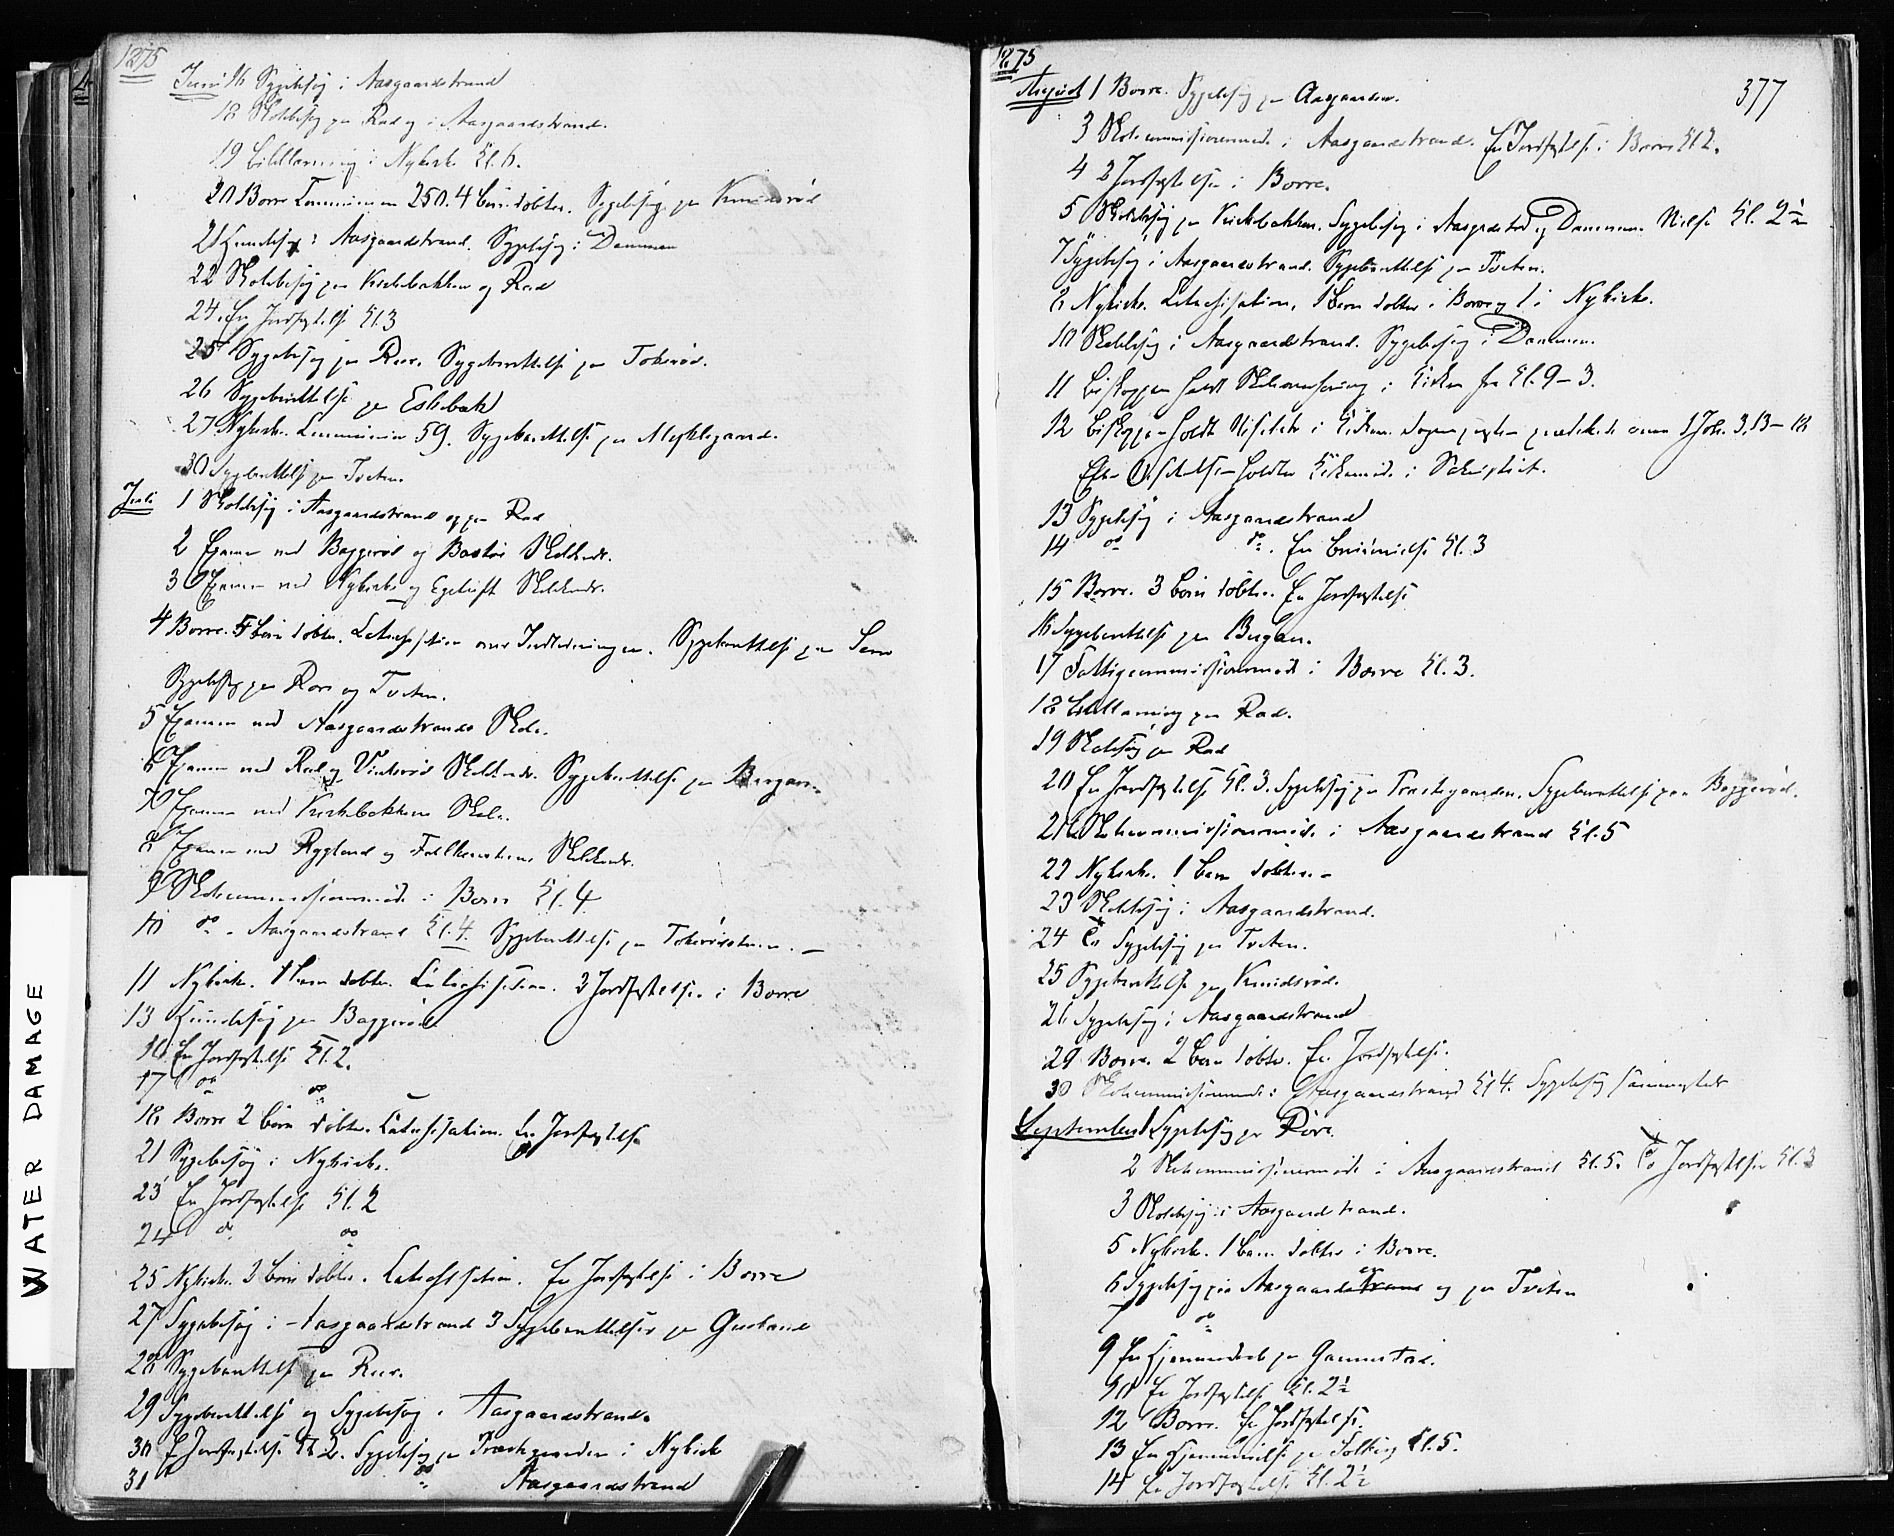 1875
Juni 16 Sygebesøg i Aasgaardstrand
18 Skolebesøg paa Rad og i Aasgaardstrand.
19 Bibellæsning i Nykirke Kl. 6.
20 Borre Communion 250. 4 børn døbte. Sygebesøg paa Knudsrød
21 Huusbesøg i Aasgaardstrand. Sygebesøg i Dammen
22 Skolebesøg paa Kirkebakken og Rad
24. En Jordfæstelse Kl. 3
25 Sygebesøg paa Rør. Sygeberettelse paa Tokerød.
26 Sygeberettelse paa Eskebæk
27 Nykirke. Communion 59. Sygeberettelse paa
30 Sygeberettelse paa Tveten.
Juli 1 Skolebesøg i Aasgaardstrand og paa Rad
2 Examen med Baggerød og Bastø Skolekreds.
3 Examen med Nykirke og Skolekreds.
4 Borre. 5 børn døbte. Catechisation over Indledningen. Sygeberettelse paa Sem
Sygebesøg paa Røre og Tveten.
5 Examen med Aasgaardstrands Skole.
6 Examen med Rad og Skolekreds. Sygeberettelse paa Bergan.
7 Examen med Kirkebakkens Skole.
8 Examen med Rygland og Falkensteens Skolekreds.
9 Skolecommissionsmøde i Borre Kl. 4
10 do - Aasgaardstrand Kl. 4. Sygeberettelse paa
11 Nykirke. 1 barn døbt. Catechisation. 2 Jordfæstelser i Borre
13 Huusbesøg paa Baggerød
16 En Jordfæstelse Kl. 2.
17 do do
18 Borre 2 børn døbte. Catechisation. En Jordfæstelse
21 Sygebesøg i Nykirke.
23 En Jordfæstelse Kl. 2
24 do do
25 Nykirke. 3 børn døbte. Catechisation. En Jordfæstelse i Borre
27 Sygebesøg i Aasgaardstrand 3 Sygeberettelser paa
28 Sygeberettelse paa Rør.
29 Sygeberettelse og Sygebesøg i Aasgaardstrand.
30 En Jordfæstelse Kl 2. Sygebesøg paa Præstegaarden i Nykirke
31 do Aasgaardstrand
WATER DAMAGE
1875
377
August 1 Borre. Sygebesøg paa Aasgaarden.
3 Skolecommissionsmøde i Aasgaardstrand. En Jordfæstelse i Borre Kl 2.
4 2 Jordfæstelser i Borre.
5 Skolebesøg paa Kirkebakken. Sygebesøg i Aasgrdstrd og Dammen. Kl. 2½
7 Sygebesøg i Aasgaardstrand. Sygeberettelse paa Tveten.
8 Nykirke. Catechisation, 1 barn døbt i Borre og 1 i Nykirke.
10 Skolebesøg i Aasgaardstrand. Sygebesøg i Dammen.
11 Biskoppen holdt Skoleoverhøring i Kirken fra Kl. 9-3.
12 Biskoppen holdt Visitats i Kirken. Sognepræsten prædikede over 1 Joh. 3,13-18
Efter Visitatsen holdtes i
13 Sygebesøg i Aasgaardstrand
14 do do. En Kl. 3
15 Borre. 3 børn døbte. En Jordfæstelse
16 Sygeberettelse paa Bergan.
17 Fattigcommissionsmøde i Borre Kl. 3.
18 Bibellæsning paa Rad.
19 Skolebesøg paa Rad
20 En Jordfæstelse Kl. 3. Sygebesøg paa Præstegaarden. Sygeberettelse paa Baggerød.
21 Skolecommissionsmøde i Aasgaardstrand Kl. 5
22 Nykirke. 1 barn døbt.
23 Skolebesøg i Aasgaardstrand.
24 Sygebesøg paa Tveten.
25 Sygeberettelse paa Knudsrød.
26 Sygebesøg i Aasgaardstrand
29 Borre. 2 børn døbte. En Jordfæstelse.
30 Skolecommissionsmøde i Aasgaardstrand Kl 4. Sygebesøg sammesteds
September 1 Sygebesøg paa Røre.
2 Skolecommissionsmøde i Aasgaardstrand Kl. 5. Jordfæstelse Kl. 3
3 Skolebesøg i Aasgaardstrand.
5 Nykirke. 1 barn døbt i Borre.
6 Sygebesøg paa Aasgaarden og paa Tveten
7 do
9 En Hjemmedaab paa Gannestad.
10 En Jordfæstelse Kl. 2½
12 Borre. En Jordfæstelse.
13 En paa Kl. 5.
14 En Jordfæstelse Kl. 2½